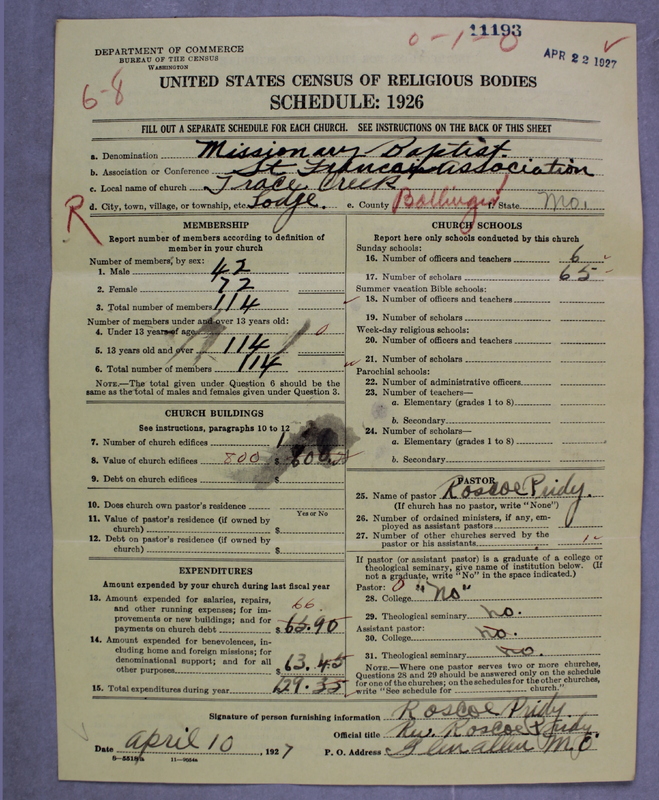 11193
0-1-0
APR 22 1927
DEPARTMENT OF COMMERCE
BUREAU OF THE CENSUS
WASHINGTON
6-8
UNITED STATES CENSUS OF RELIGIOUS BODIES
SCHEDULE: 1926
FILL OUT A SEPARATE SCHEDULE FOR EACH CHURCH. SEE INSTRUCTIONS ON THE BACK OF THIS SHEET
a. Denomination Missionary Baptist.
b. Association or Conference St Francois Association
c. Local name of church Trace Creek
d. City, town, village, or township, etc. Lodge. e. County Bollinger f. State Mo.
R
MEMBERSHIP
Report number of members according to definition of
member in your church
Number of members, by sex:
1. Male 42
2. Female 72
3. Total number of members 114
Number of members under and over 13 years old:
4. Under 13 years of age 0
5. 13 years old and over 114
6. Total number of members 114
NOTE.—The total given under Question 6 should be the
same as the total of males and females given under Question 3.
CHURCH BUILDINGS
See instructions, paragraphs 10 to 12
7. Number of church edifices 1
8. Value of church edifices 800 $
9. Debt on church edifices $
10. Does church own pastor's residence
Yes or No
11. Value of pastor's residence (if owned by
church) $
12. Debt on pastor's residence (if owned by
church) $
EXPENDITURES
Amount expended by your church during last fiscal year
13. Amount expended for salaries, repairs,
and other running expenses; for im-
provements or new buildings; and for
payments on church debt 66. $ 65.90
14. Amount expended for benevolences, in-
cluding home and foreign missions; for
denominational support; and for all
other purposes $ 63.45
15. Total expenditures during year 129.35
CHURCH SCHOOLS
Report here only schools conducted by this church
Sunday schools:
16. Number of officers and teachers 6
17. Number of scholars 65
Summer vacation Bible schools:
18. Number of officers and teachers
19. Number of scholars
Week-day religious schools:
20. Number of officers and teachers
21. Number of scholars
Parochial schools:
22. Number of administrative officers
23. Number of teachers—
a. Elementary (grades 1 to 8)
b. Secondary
24. Number of scholars—
a. Elementary (grades 1 to 8)
b. Secondary
PASTOR
25. Name of pastor Roscoe Pridy.
(If church has no pastor, write "None")
26. Number of ordained ministers, if any, em-
ployed as assistant pastors
27. Number of other churches served by the
pastor or his assistants 1
If pastor (or assistant pastor) is a graduate of a college or
theological seminary, give name of institution below. (If
not a graduate, write "No" in the space indicated.)
Pastor: 0
28. College "No"
29. Theological seminary No.
Assistant pastor:
30. College No.
31. Theological seminary no.
NOTE.—Where one pastor serves two or more churches,
Questions 28 and 29 should be answered only on the schedule
for one of the churches; on the schedules for the other churches,
write "See schedule for church."
Signature of person furnishing information Roscoe Pridy
Official title Rev. Roscoe Pridy
Date April 10, 1927 P. O. Address Glenallen Mo.
8-5518a 11-9664a